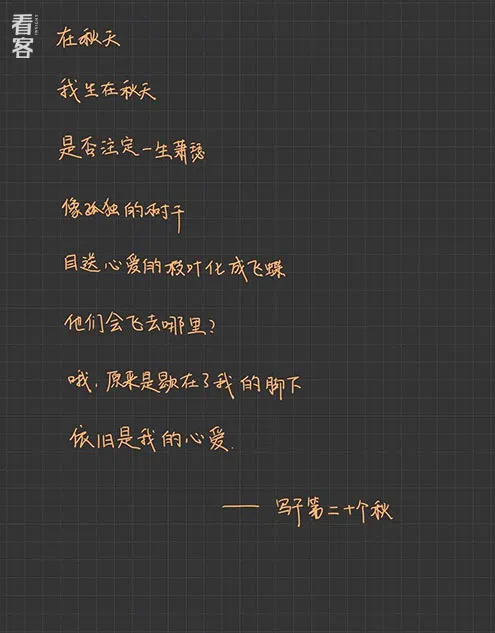 看客
在秋天
我生在秋天
是否注定一生萧瑟
像孤独的树干
目送心爱的枝叶化成飞蝶
他们会飞去哪里?
哦,原来是歇在了我的脚下
依旧是我的心爱.
—— 写于第二十个秋